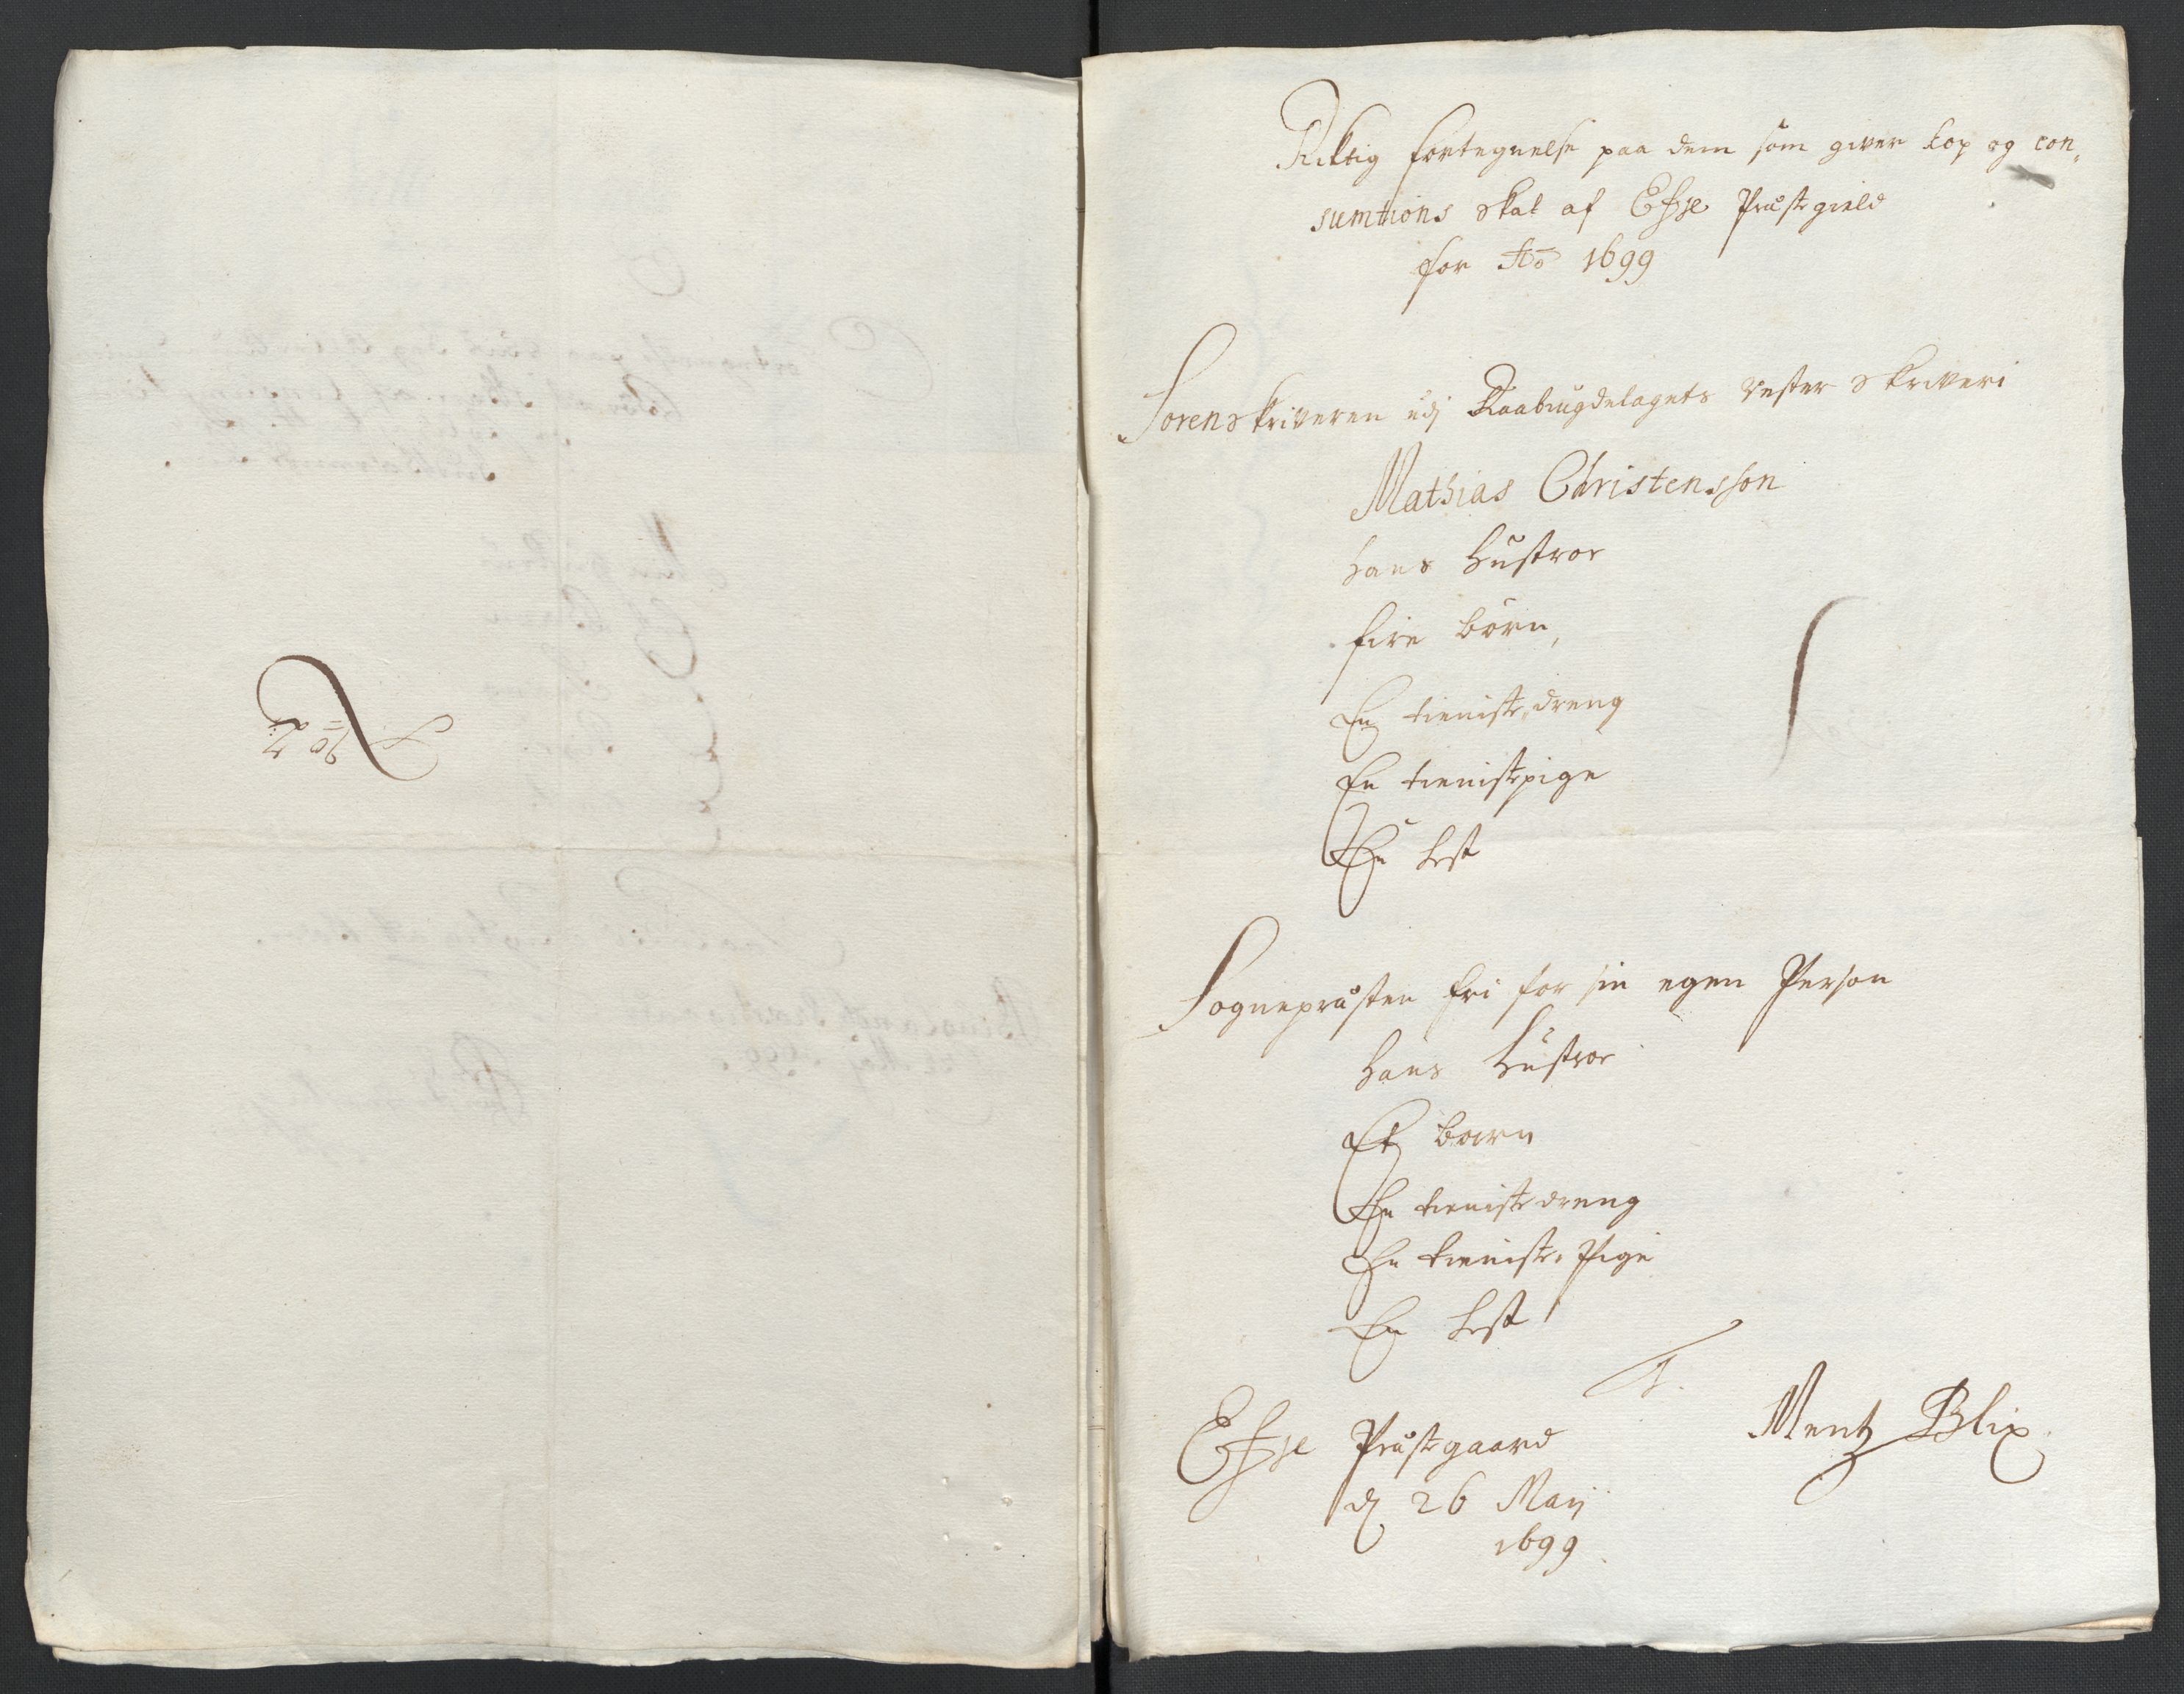 Riktig fortegnelse paa dem som giver kop og con„
sumtions skat af Efsie Præstegield
for Ao 1699
Sorenskriveren udj Raabrugdelagets Vester skriveri
Mathias Christensson
hans Hustroe
fire børn,
En tieniste dreng
En tienistepige
En Hest
Sognepræsten fri for sin egen Person
hans Hustroe
Et barn
En tieniste dreng
En tieniste Pige
En Hest
Efsie Præstegaard
d 26 Maij
1699
Mentz Blix